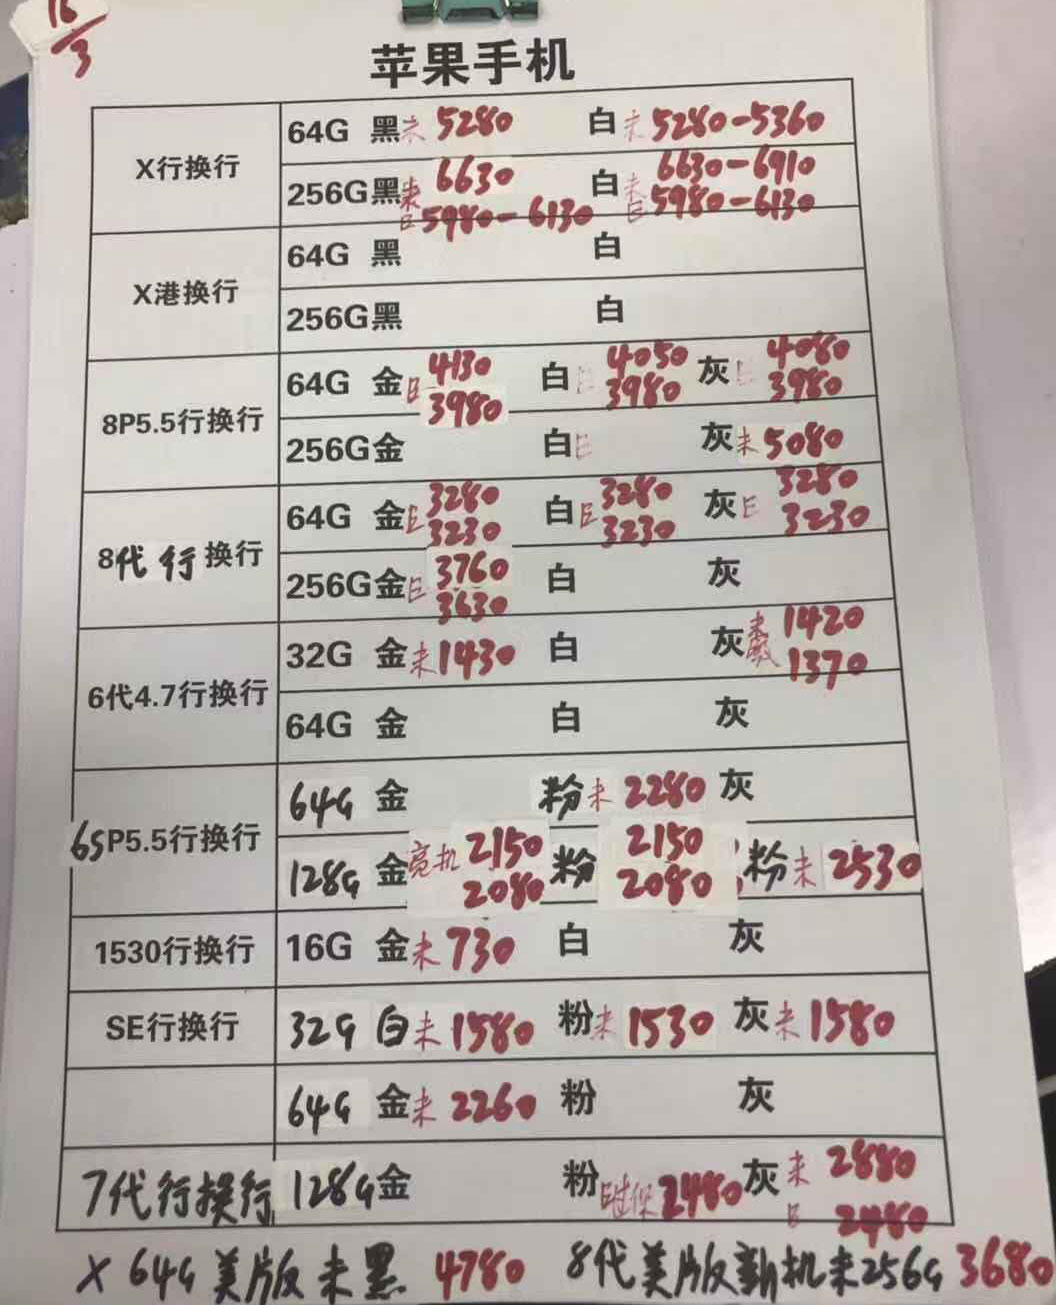 16/3
苹果手机
X行换行
64G 黑未 5280 白未 5280-5360
256G黑未 6630 白未 6630-6910
已5980-6130 已5980-6130
X港换行
64G 黑 白
256G黑 白
8P5.5行换行
64G 金已 4130 白已 4050 灰已 4080
3980 3980 3980
256G金 白已 灰未 5080
8代行换行
64G 金已 3280 白已 3280 灰已 3280
3230 3230 3230
256G金已 3760 白 灰
3630
6代4.7行换行
32G 金未1430 白 灰未 1420
1370
64G 金 白 灰
6SP5.5行换行
64G 金 粉未 2280 灰
128G 金亮机 2150 粉 2150 粉未 2530
2080 2080
1530行换行
16G 金未 730 白 灰
SE行换行
32G 白未 1580 粉未 1530 灰未 1580
64G 金未 2260 粉 灰
7代行换行
128G金 粉已过保2480 灰未 2880
已 2480
X 64G 美版未黑 4780 8代美版新机未256G 3680